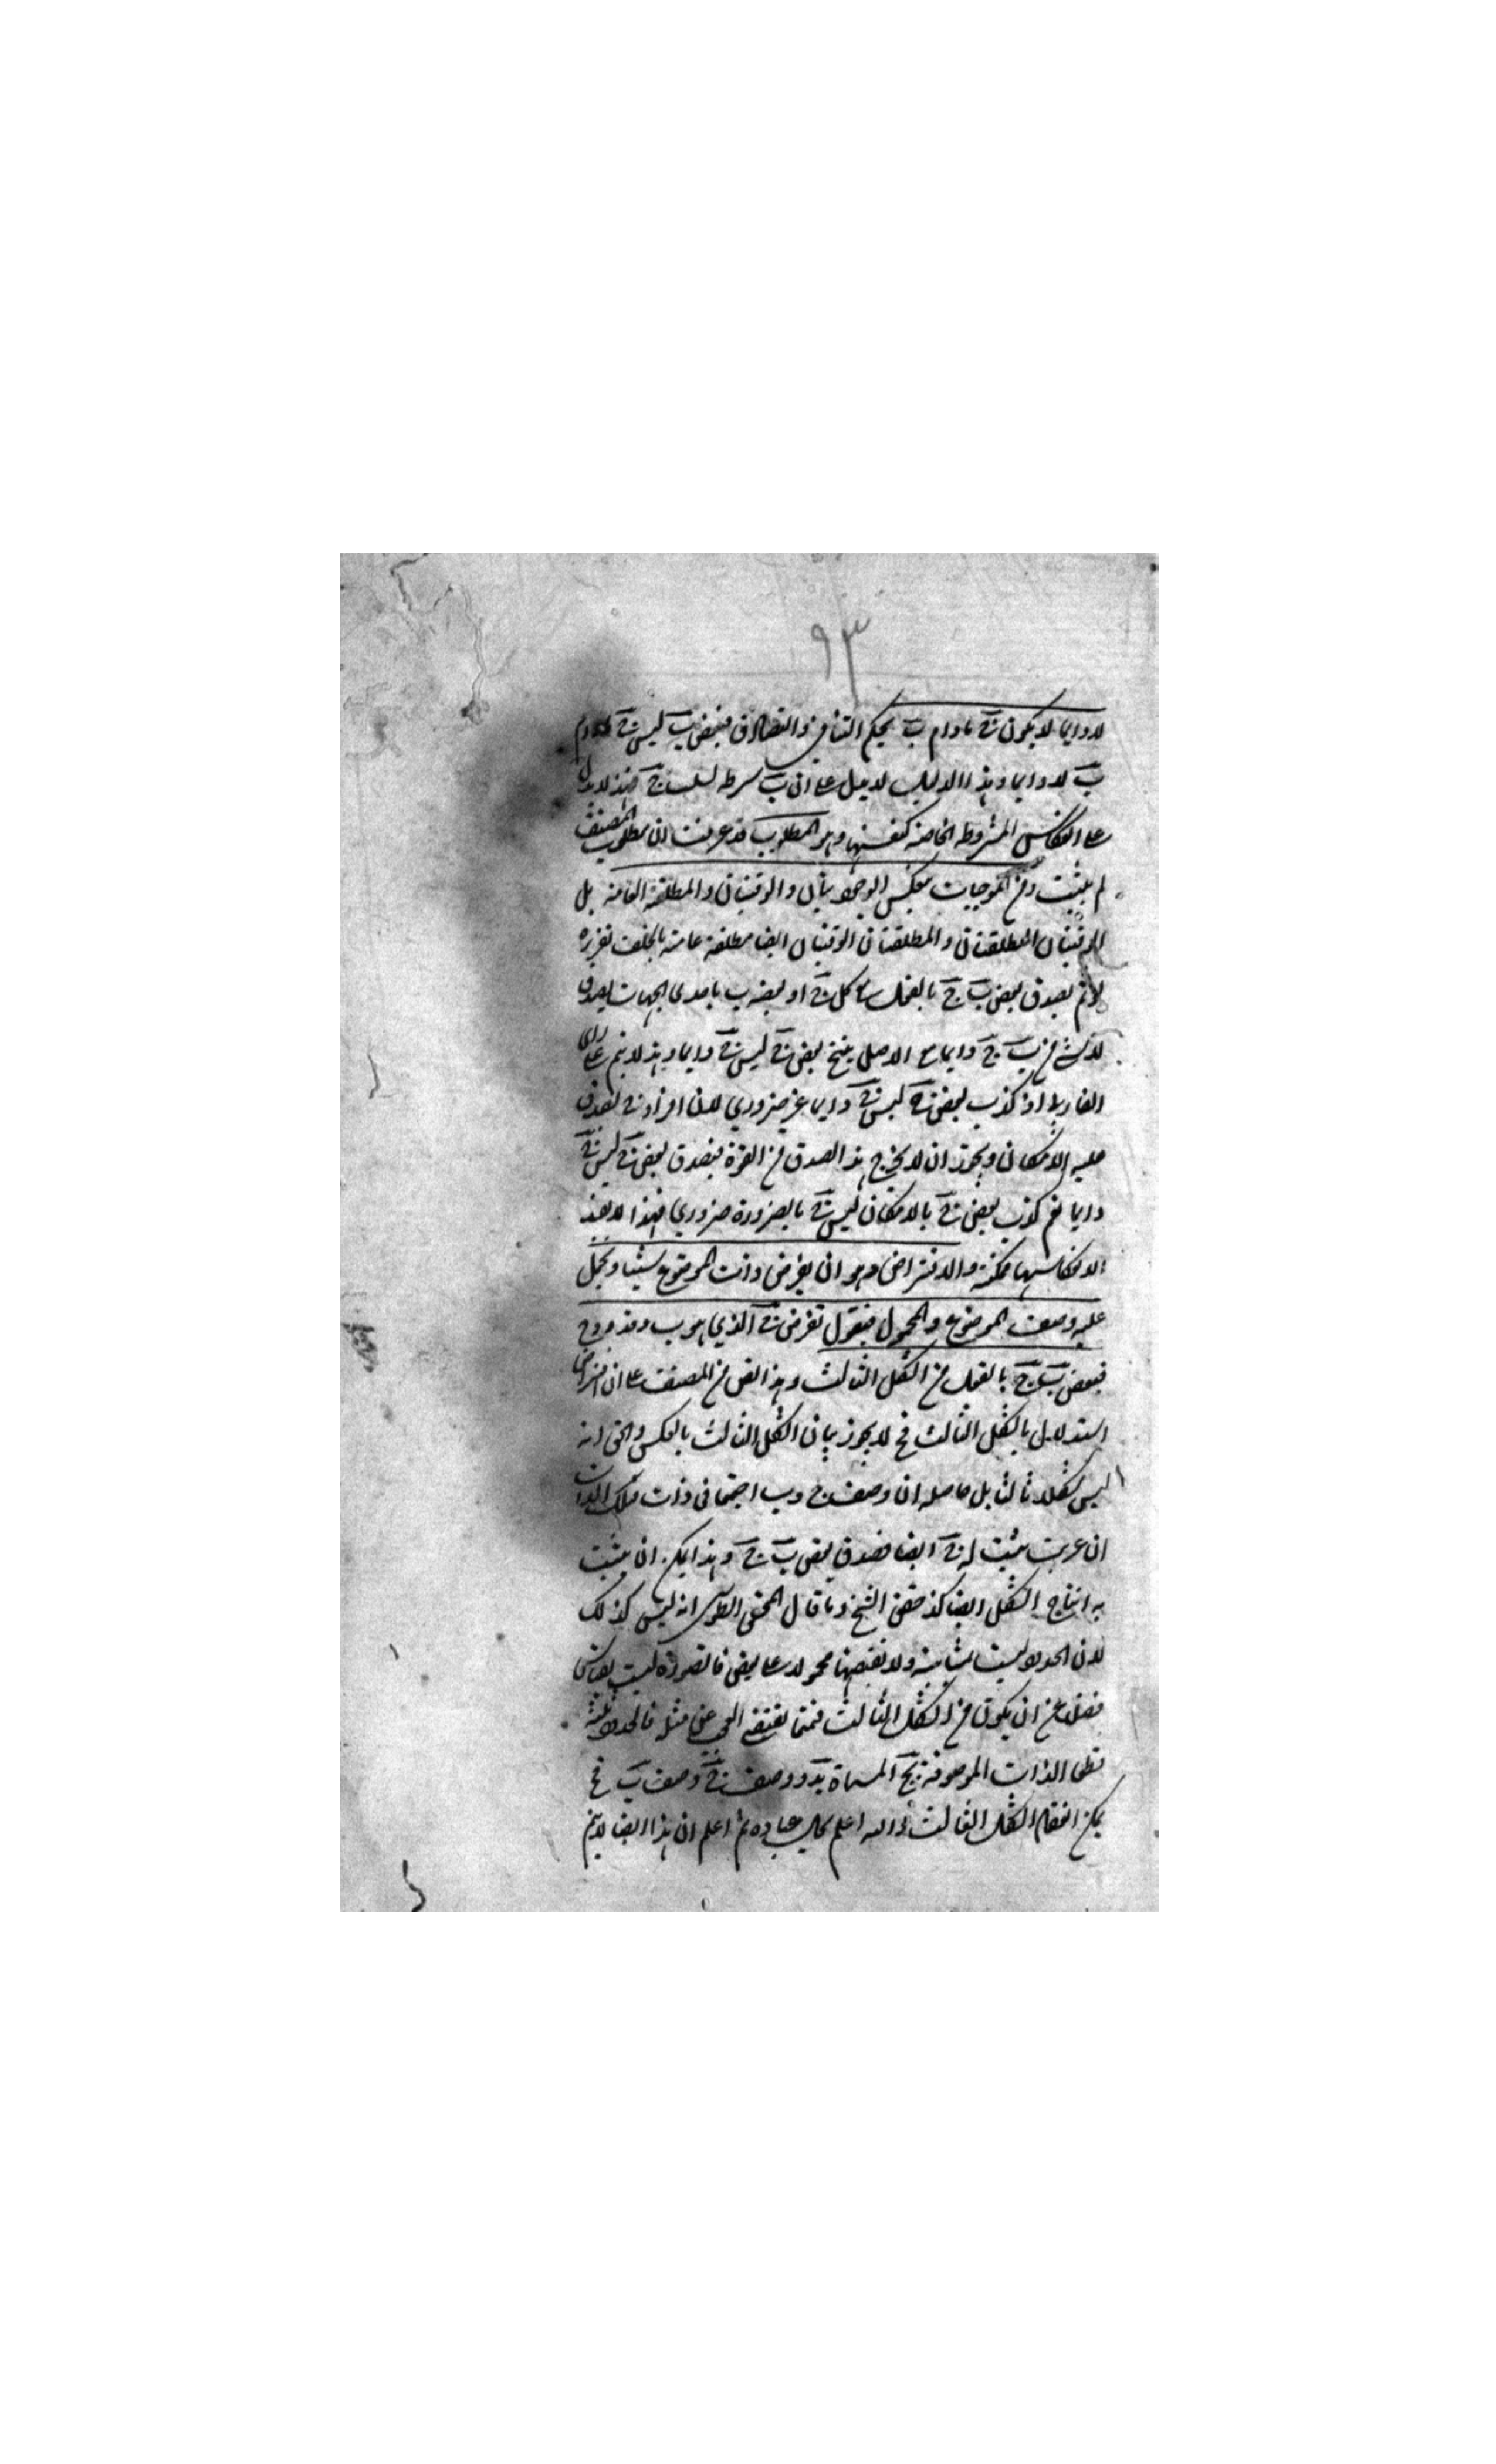 ٩٣
لادوايما لا يكون ج مادام ب بحكم التنافي والتصادق فبعض ب ليس ج مادام
ب لادوايما وهذا الدليل لا يدل على ان ب شرط لسلب ج فهذا لا يدل
على انعكاس المشروطة الخاصة كنفسها وهو المطلوب قد عرفت ان مطلوب المصنف
لم يثبت ومن الموجبات تعكس الوجوديتان والوقتيتان والمطلقة العامة بل
الوقتيتان المطلقتان والمطلقتان الوقتيتان ايضا مطلقة عامة بالخلف تقريره
لو لم يصدق بعض ب ج بالفعل مع كل ج او بعضه ب باحدى الجهات لصدق
لا شي من ب ج دايما مع الاصل ينتج بعض ج ليس ج دايما وهذا لا يتم على راى
الفارابي اذ كذب بعض ج ليس ج دايما غير ضروري لان افراد ج لصدق
عليه الامكان ويجوز ان لا يخرج هذا الصدق من القوة فيصدق بعض ج ليس ج
دايما نعم كذب بعض ج بالامكان ليس ج بالضرورة ضروري فهذا لا يفيد
الا انعكاسها ممكنة والافتراض وهو ان يفرض ذات الموضوع شيئا ويحمل
عليه وصف الموضوع والمحمول فيقول نفرض ج الذي هو ب د فد ب و د ج
فبعض ب ج بالفعل من الشكل الثالث وهذا نص من المصنف على ان الافتراض
استدلال بالشكل الثالث فح لا يجوز بيان الشكل الثالث بالعكس والحق انه
ليس شكلا ثالثا بل حاصله ان وصف ج و ب اجتمعا في ذات فتلك الذات
ان عبرت ب يثبت له ج ايضا فصدق بعض ب ج وهذا يمكن ان يثبت
به انتاج الشكل ايضا كذا حققه الشيخ وما قال المحقق الطوسي انه ليس كذلك
لان الحدود ليست بمتباينة ولا بعضها محمولا على بعض فالصورة ليست بقياس
فضلا عن ان يكون من الشكل الثالث فمما يقتضه العجب عن مثله فالحدود ثلثة
قطعا الذات الموصوفة بج المسماة بد ووصف ج وصف ب فح
يمكن انعقاد الشكل الثالث والله اعلم بحال عباده ثم اعلم ان هذا ايضا لا يتم